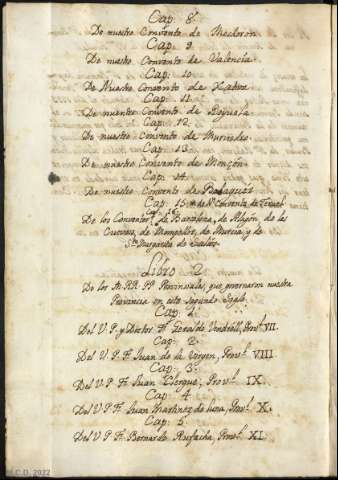 Cap. 8.
De nuestro Convento de
Cap. 9
De nuestro Convento de Valencia
Cap. 10
De Nuestro Convento de Xativa
Cap. 11
De nuestro Convento de
Cap. 12.
De nuestro Convento de Murviedro
Cap. 13
De nuestro Convento de Monzon
Cap. 14
De nuestro Convento de Balaguer
Cap. 15. de Nro Convento de Teruel
De los Conventos de Barcelona, de de las
Cuevas, de Mompeller, de Murcia y de
Sta Margarita de
Libro 2.
De los M. RR. PP. Provinciales, que governaron nuestra
Provincia en este segundo Siglo.
Cap. 1.
Del V. P. y Doctor F. Vendrell, Provl. VII.
Cap. 2.
Del V. P. F. Juan de la Virgen, Provl. VIII
Cap. 3.
Del V. P. F. Juan Clergue, Provl. IX.
Cap. 4
Del V. P. F. Juan Martinez de luna, Provl. X.
Cap. 5.
Del V. P. F. Bernardo Rufacha, Provl. XI.
M.C.D. 2022